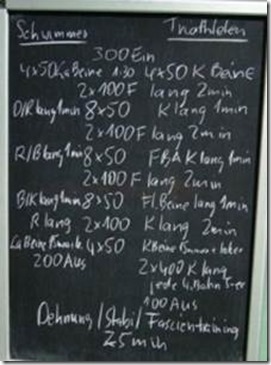 Schwimmer Triathleten
300 Ein
4x50 Beine 1:30 4x50 K Beine
2x100 F lang 2min
D/R lang 1min 8x50 K lang 1min
2x100 F lang 2min
R/B lang 1min 8x50 FBA K lang 1min
2x100 F lang 2min
B/K lang 1min 8x50 Fl. Beine lang 1min
R lang 2x100 K lang 2min
Beine 4x50 K Beine locker
200 Aus 2x400 K lang
jede 4. Bahn 5-er
100 Aus
Dehnung/Stabi/Fascientraining
25 min